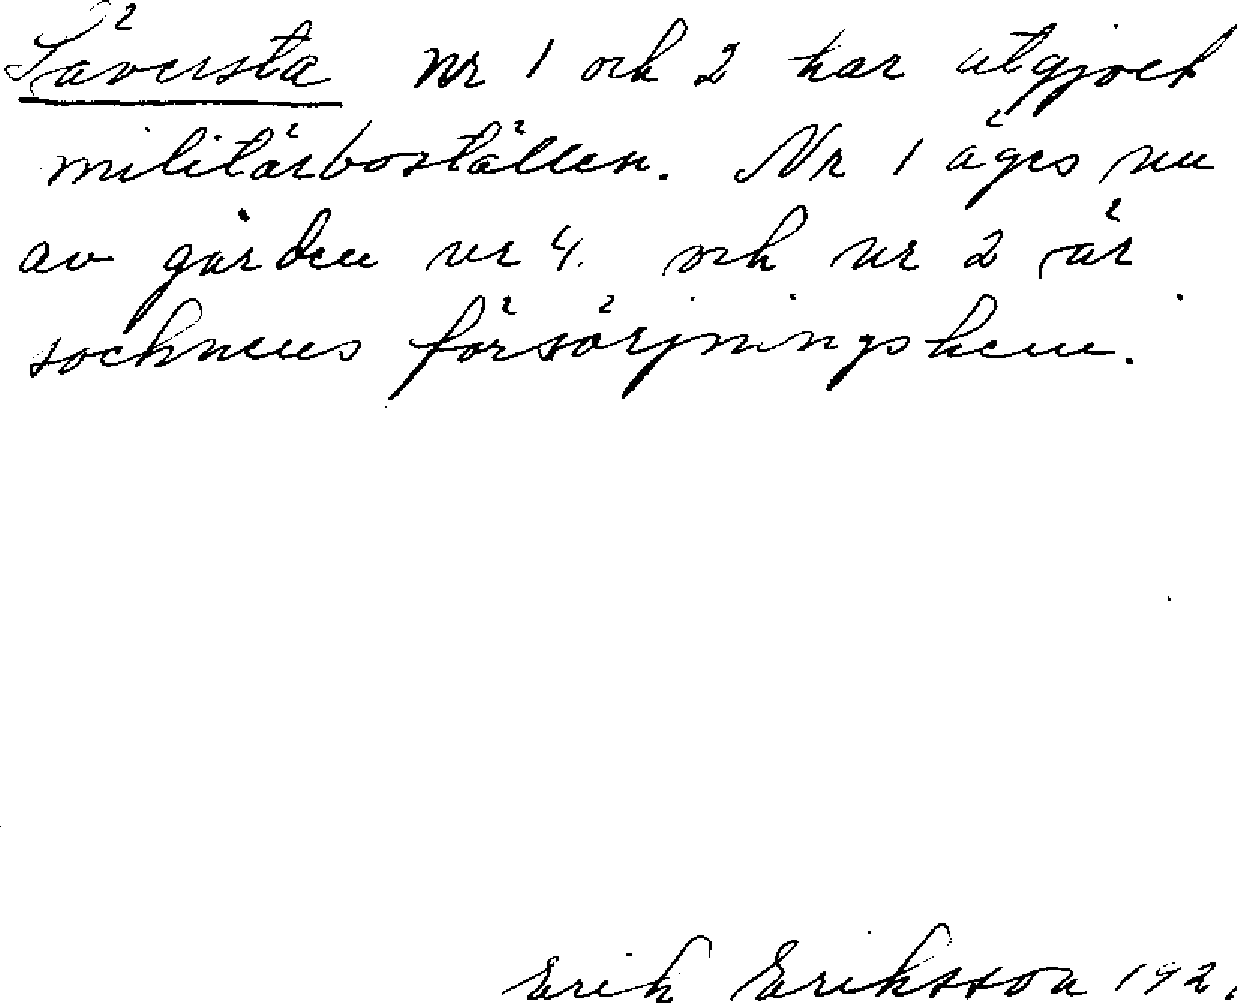 Säversta nr 1 och 2 har utgjort
militärboställen. Nr 1 äges nu
av gården nr 4. och nr 2 är
socknens försörjningshem.
Erik Eriksson 192